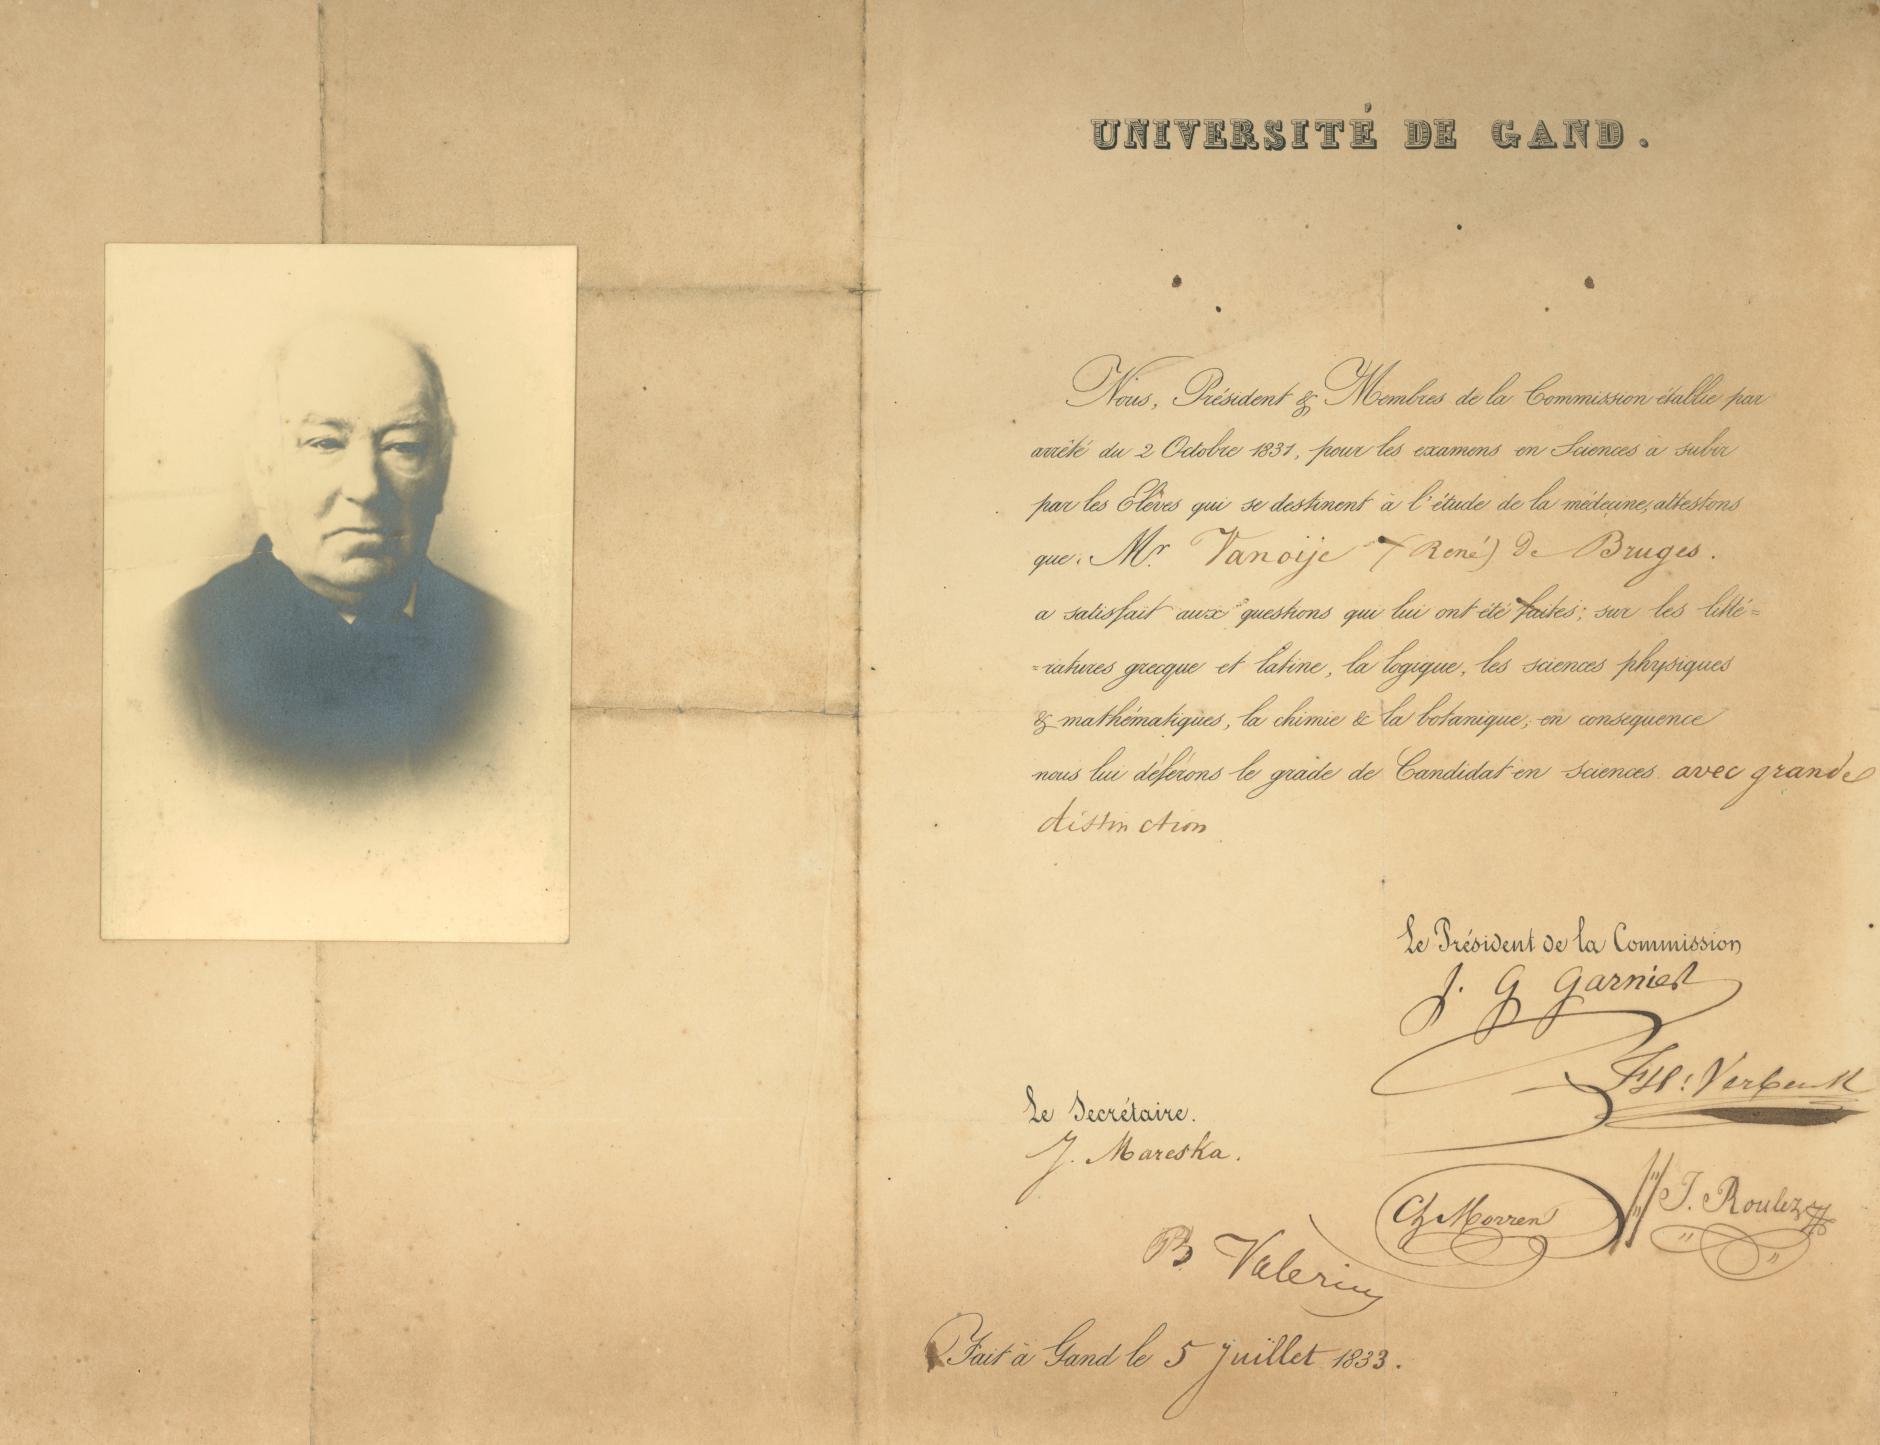 UNIVERSITÉ DE GAND.
Nous, Président & Membres de la Commission établie par
arrêté du 2 Octobre 1831, pour les examens en Sciences à subir
par les Elêves qui se destinent à l'étude de la médecine, attestons
que Mr Vanoije (René) De Bruges.
a satisfait aux questions qui lui ont été faites; sur les litté=
=ratures grecque et latine, la logique, les sciences physiques
& mathématiques, la chimie & la botanique; en consequence
nous lui déférons le grade de Candidat en sciences avec grande
distinction
Le Président de la Commission
J. G Garnier
Le Secrétaire.
J. Mareska.
Ch Morren
J. Roulez
B Valerius
Fait à Gand le 5 Juillet 1833.